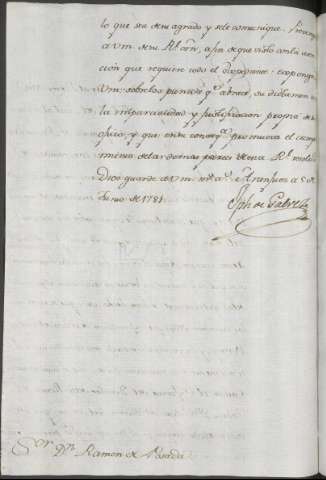 lo que sea de su agrado y se le comunique. Prevengo
a Vm. de su Rl. orn, a fin de que visto con la aten
cion que requiere todo el expediente: exponga
Vm. sobre los puntos qe. abraza, su dictamen con
la imparcialidad y justificacion propria de su
oficio, y que en su conseqa. promueva el
de las demas partes de esta Rl.
Dios guarde a Vm. ms. as. Aranjuez a 5 de
Junio de 1781.
Jph de Galvez
Sor. Dn. Ramon de Posada